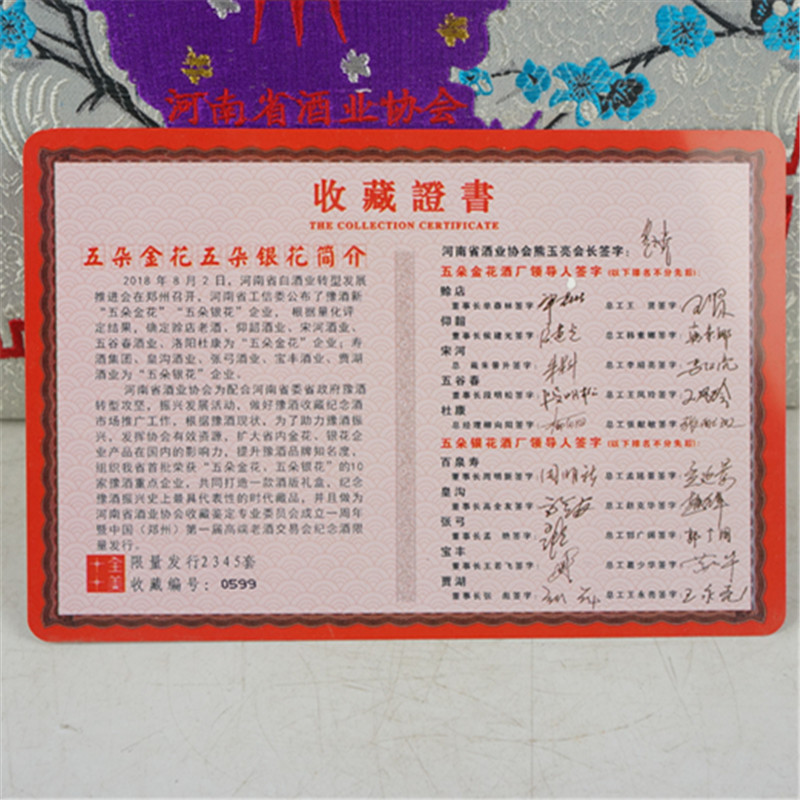 河南省酒业协会
收藏證書
THE COLLECTION CERTIFICATE
五朵金花五朵银花简介
2018年8月2日，河南省白酒业转型发展
推进会在郑州召开，河南省工信委公布了豫酒新
“五朵金花”“五朵银花”企业，根据量化评
定结果，确定赊店老酒、仰韶酒业、宋河酒业、
五谷春酒业、洛阳杜康为“五朵金花”企业；寿
酒集团、皇沟酒业、张弓酒业、宝丰酒业、贾湖
酒业为“五朵银花”企业。
河南省酒业协会为配合河南省委省政府豫酒
转型攻坚，振兴发展活动，做好豫酒收藏纪念酒
市场推广工作，根据豫酒现状，为了助力豫酒振
兴，发挥协会有效资源，扩大省内金花、银花企
业产品在国内的影响力，提升豫酒品牌知名度，
组织我省首批荣获“五朵金花，五朵银花”的10
家豫酒重点企业，共同打造一款酒版礼盒，纪念
豫酒振兴史上最具代表性的时代藏品，并且做为
河南省酒业协会收藏鉴定专业委员会成立一周年
暨中国（郑州）第一届高端老酒交易会纪念酒限
量发行。
十全十美
限量发行2345套
收藏编号：0599
河南省酒业协会熊玉亮会长签字：
五朵金花酒厂领导人签字（以下排名不分先后）
赊店
董事长 签字： 总工王 贤签字：
仰韶
董事长侯建光签字： 总工韩素娜签字：
宋河
总 裁朱景升签字： 总工李绍亮签字：
五谷春
董事长段明松签字： 总工王凤玲签字：
杜康
总经理柳向阳签字： 总工张献敏签字：
五朵银花酒厂领导人签字（以下排名不分先后）：
百泉寿
董事长周明新签字： 总工孟延豪签字：
皇沟
董事长高全友签字： 总工赵克华签字：
张弓
董事长孟 艳签字： 总工郭广阔签字：
宝丰
董事长王若飞签字： 总工葛少华签字：
贾湖
董事长张 彪签字： 总工王永亮签字：